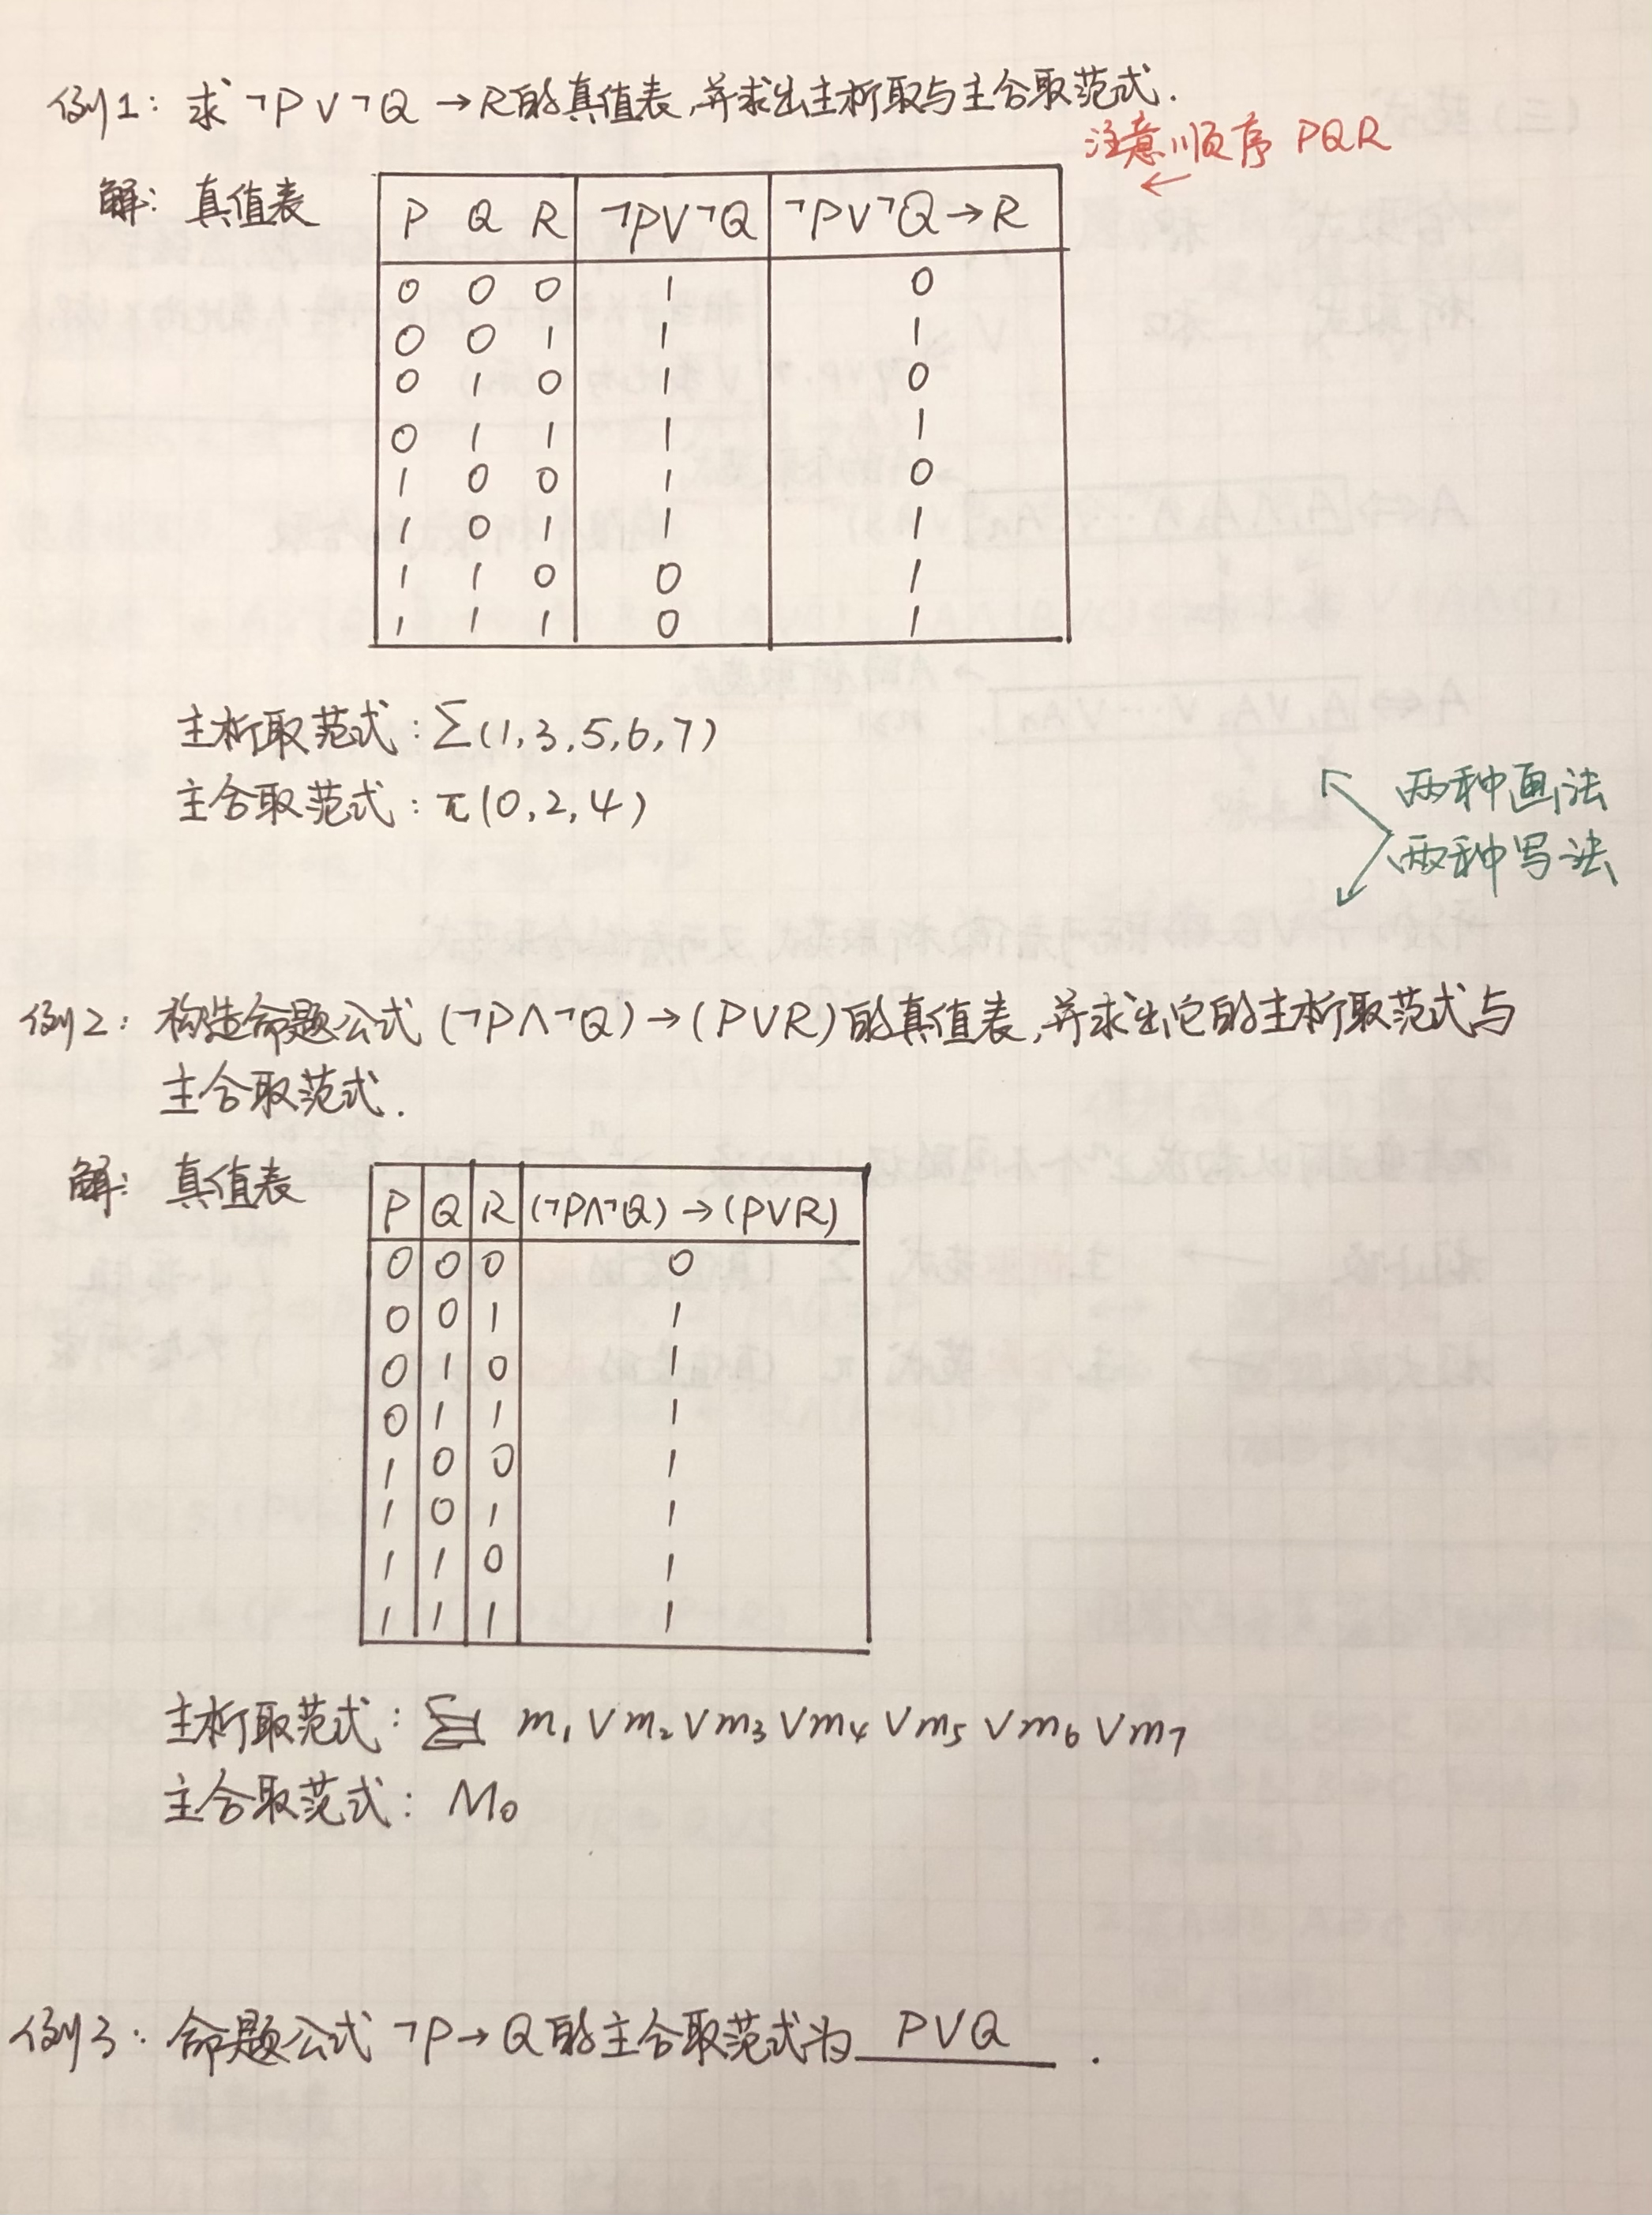 例1: 求 ¬P∨¬Q→R的真值表,并求出主析取与主合取范式.
注意顺序 PQR
←
解: 真值表
P Q R ¬P∨¬Q ¬P∨¬Q→R
0 0 0 1 0
0 0 1 1 1
0 1 0 1 0
0 1 1 1 1
1 0 0 1 0
1 0 1 1 1
1 1 0 0 1
1 1 1 0 1
主析取范式: ∑(1,3,5,6,7)
主合取范式: π(0,2,4)
两种画法
两种写法
例2: 构造命题公式 (¬P∧¬Q)→(P∨R)的真值表,并求出它的主析取范式与
主合取范式.
解: 真值表
P Q R (¬P∧¬Q)→(P∨R)
0 0 0 0
0 0 1 1
0 1 0 1
0 1 1 1
1 0 0 1
1 0 1 1
1 1 0 1
1 1 1 1
主析取范式: m₁∨m₂∨m₃∨m₄∨m₅∨m₆∨m₇
主合取范式: M₀
例3: 命题公式 ¬P→Q的主合取范式为 P∨Q .